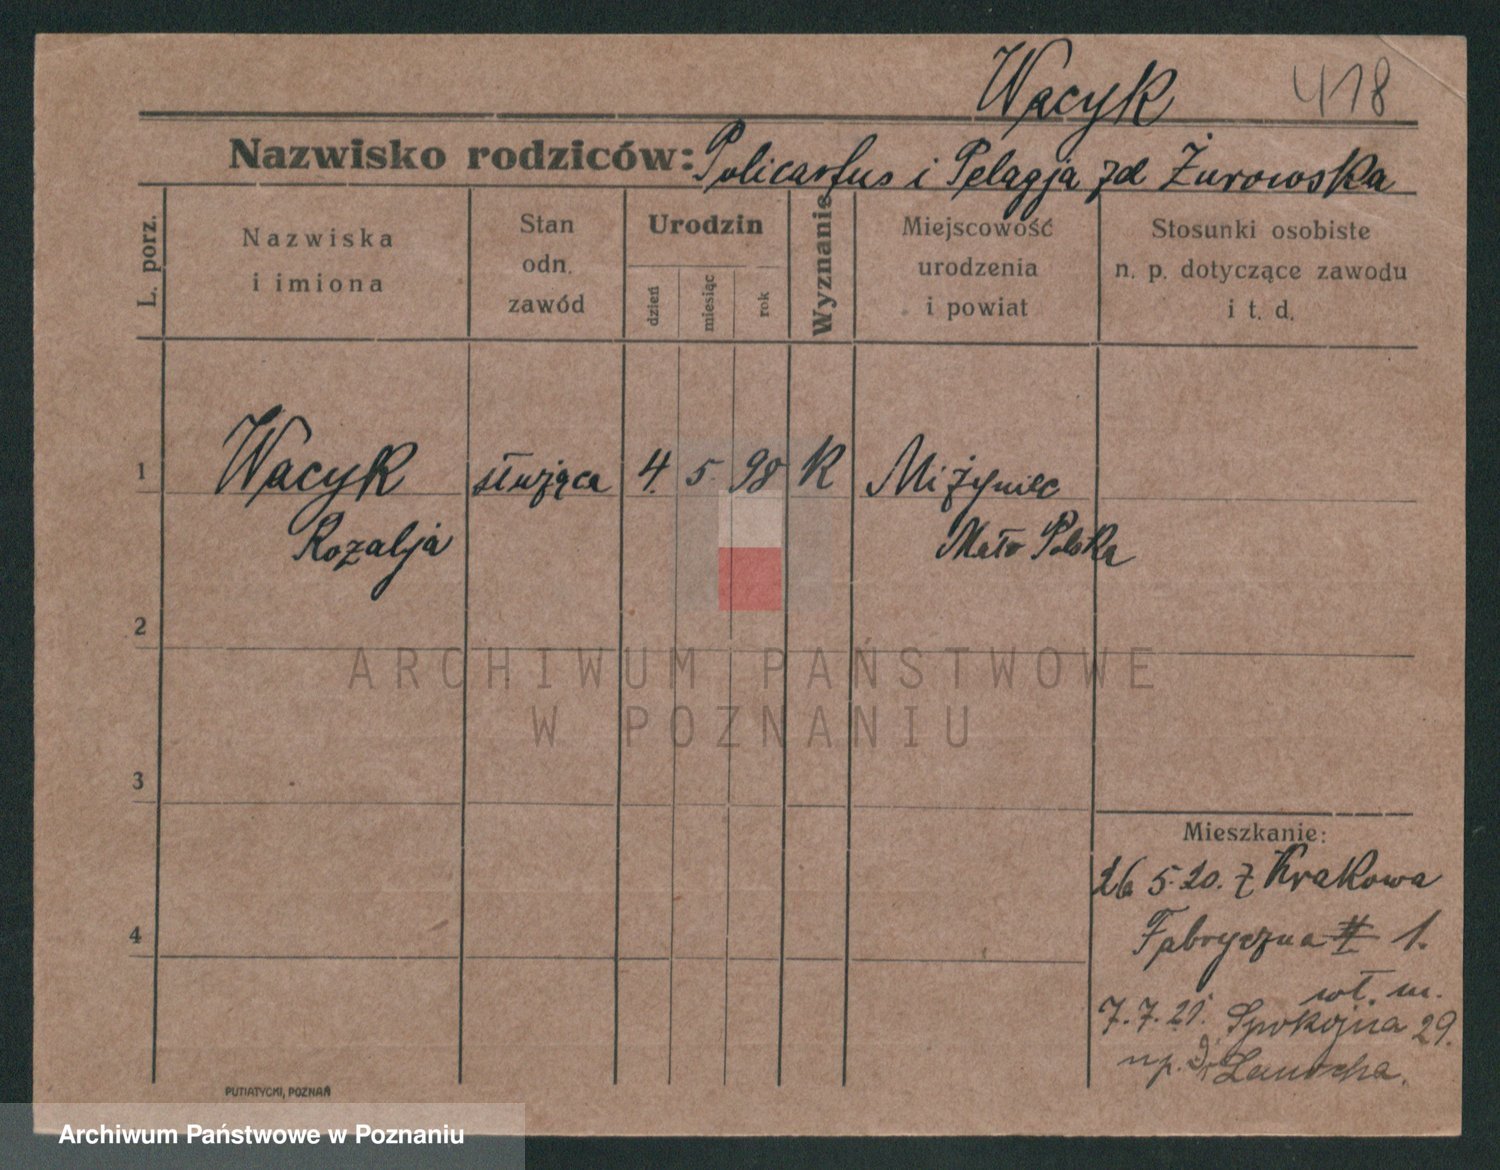 Wacyk 418
Nazwisko rodziców: Policarfus i Pelagja zd Żurowska
L. porz.
Nazwiska i imiona
Stan odn. zawód
Urodzin
dzień
miesiąc
rok
Wyznanie
Miejscowość urodzenia i powiat
Stosunki osobiste n. p. dotyczące zawodu i t. d.
1 Wacyk służąca 4. 5. 98 K Miżyniec
Rozalja Mało Polska
2
ARCHIWUM PAŃSTWOWE
W POZNANIU
3
Mieszkanie:
26 5. 20. z Krakowa
4 Fabryczna 1.
wł. m.
7. 7. 21. Spokojna 29.
np. Dr
PUTIATYCKI, POZNAŃ
Archiwum Państwowe w Poznaniu